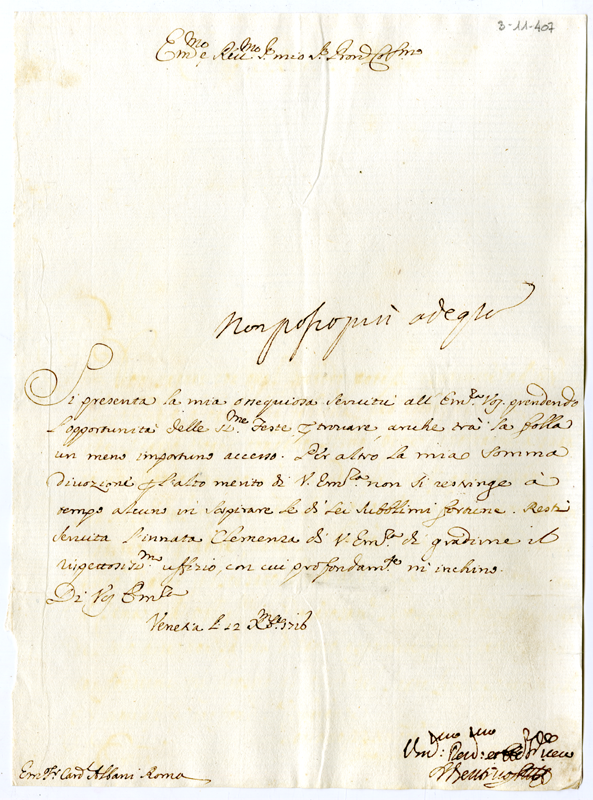 3-11-407
Em.mo e Rev.mo Sr mio Sr Pron Col.mo
Non posso più
Si presenta la mia ossequiosa servitù all' Em.za Vos. prendendo
l'opportunità delle SS.me Feste trovare, anche trà la folla
un meno importuno accesso. Per altro la mia somma
divozione l'alto merito di V. Em.za non si restringe à
tempo alcuno in sospirare le di Lei sublimi fortune. Resti
servita l'innata Clemenza di V. Em.za di gradirne il
rispettosiss.mo uffizio, con cui profondam.te m'inchino.
Di Vos Em.za
Venezia li 12 Xbre 1716
Em.o Sr Card. Albani Roma